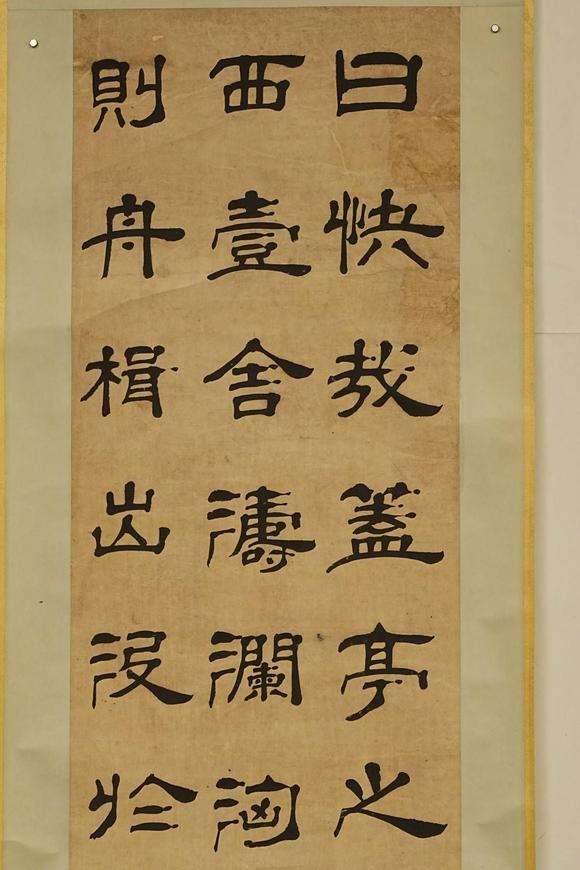 曰快哉蓋亭之
西壹舍濤瀾洶
則舟楫出沒於